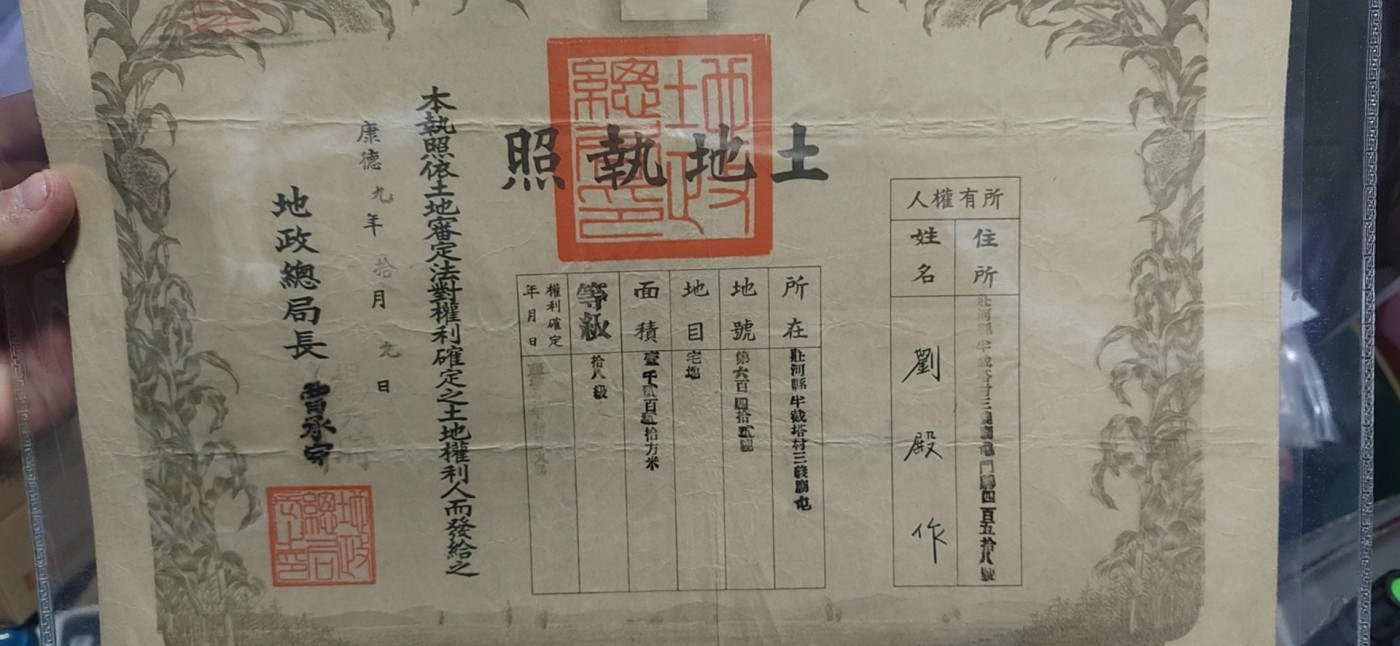 土地執照
所有權人
住所
莊河縣半截塔村三
門牌四百五拾八號
姓名
劉殿作
所在
莊河縣半截塔村三
屯
地號
第六百四拾貳號
地目
宅地
面積
壹千貳百
拾方米
等級
拾八級
權利確定
年月日
本執照依土地審定法對權利確定之土地權利人而發給之
康德九年拾月九日
地政總局長
曹承宗
地政
總局
之印
地政
總局
長印